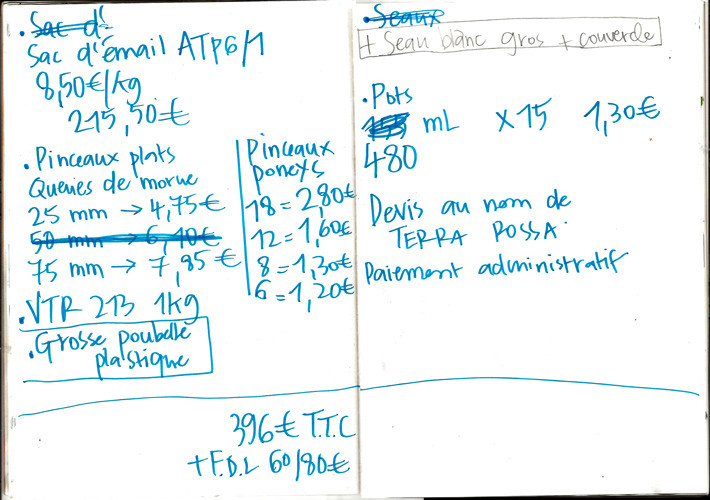 • Sac d'
Sac d'émail ATP6/1
8,50€/kg
215,50€
• Pinceaux plats
Queues de morue
25 mm → 4,75€
50 mm → 6,10€
75 mm → 7,85€
• VTR 213 1kg
• Grosse poubelle
plastique
Pinceaux
poneys
18 = 2,80€
12 = 1,60€
8 = 1,30€
6 = 1,20€
396€ T.T.C
+ F.D.L 60/80€
• Seaux
+ Seau blanc gros + couvercle
• Pots
mL x15 1,30€
480
Devis au nom de
TERRA ROSSA.
Paiement administratif